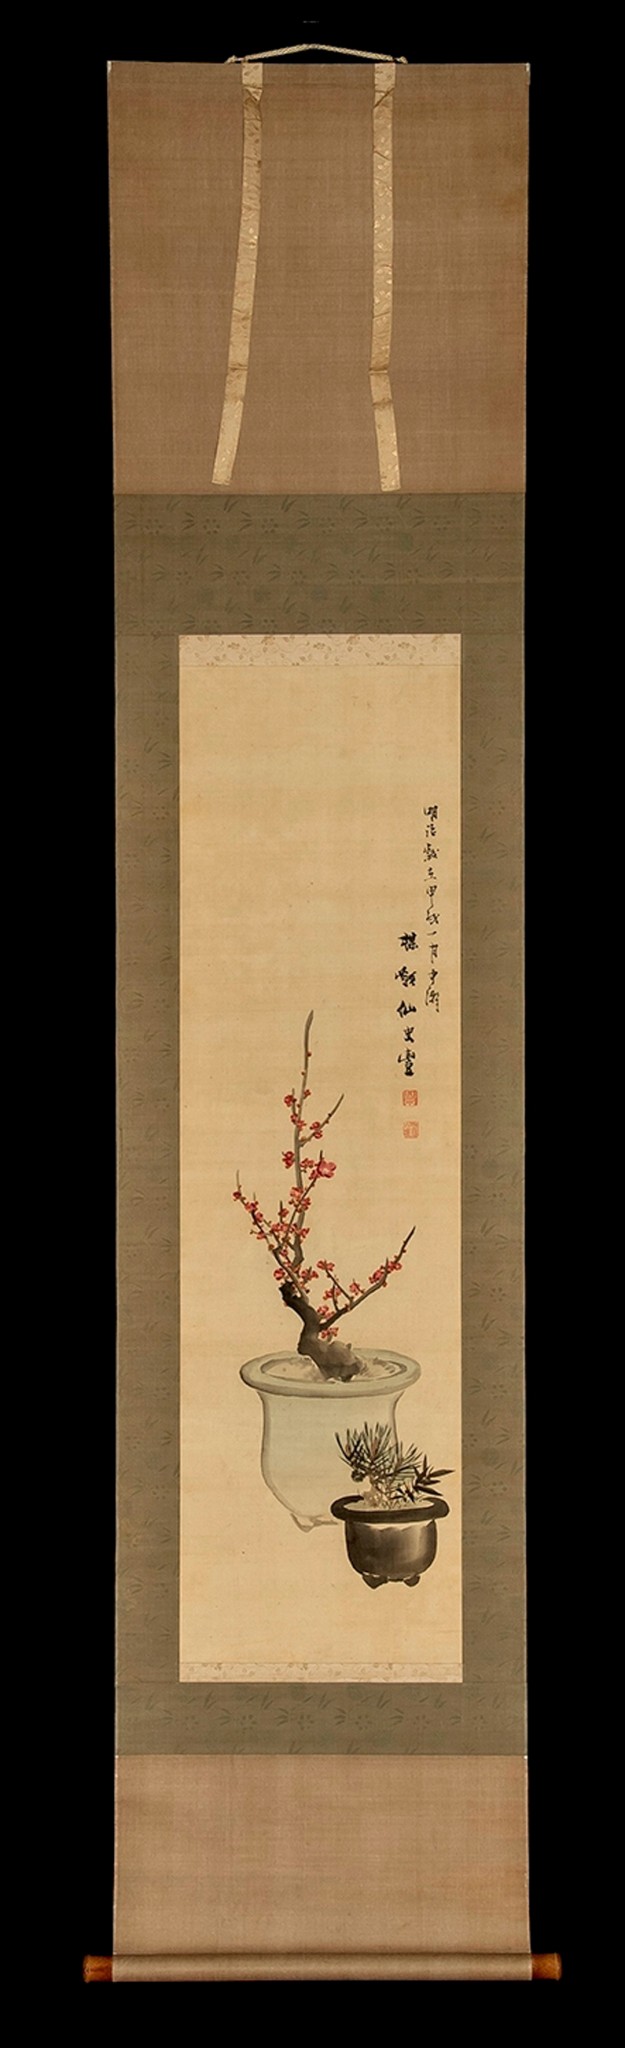 明治歳在甲戌一月中澣
楳嶺仙史豊